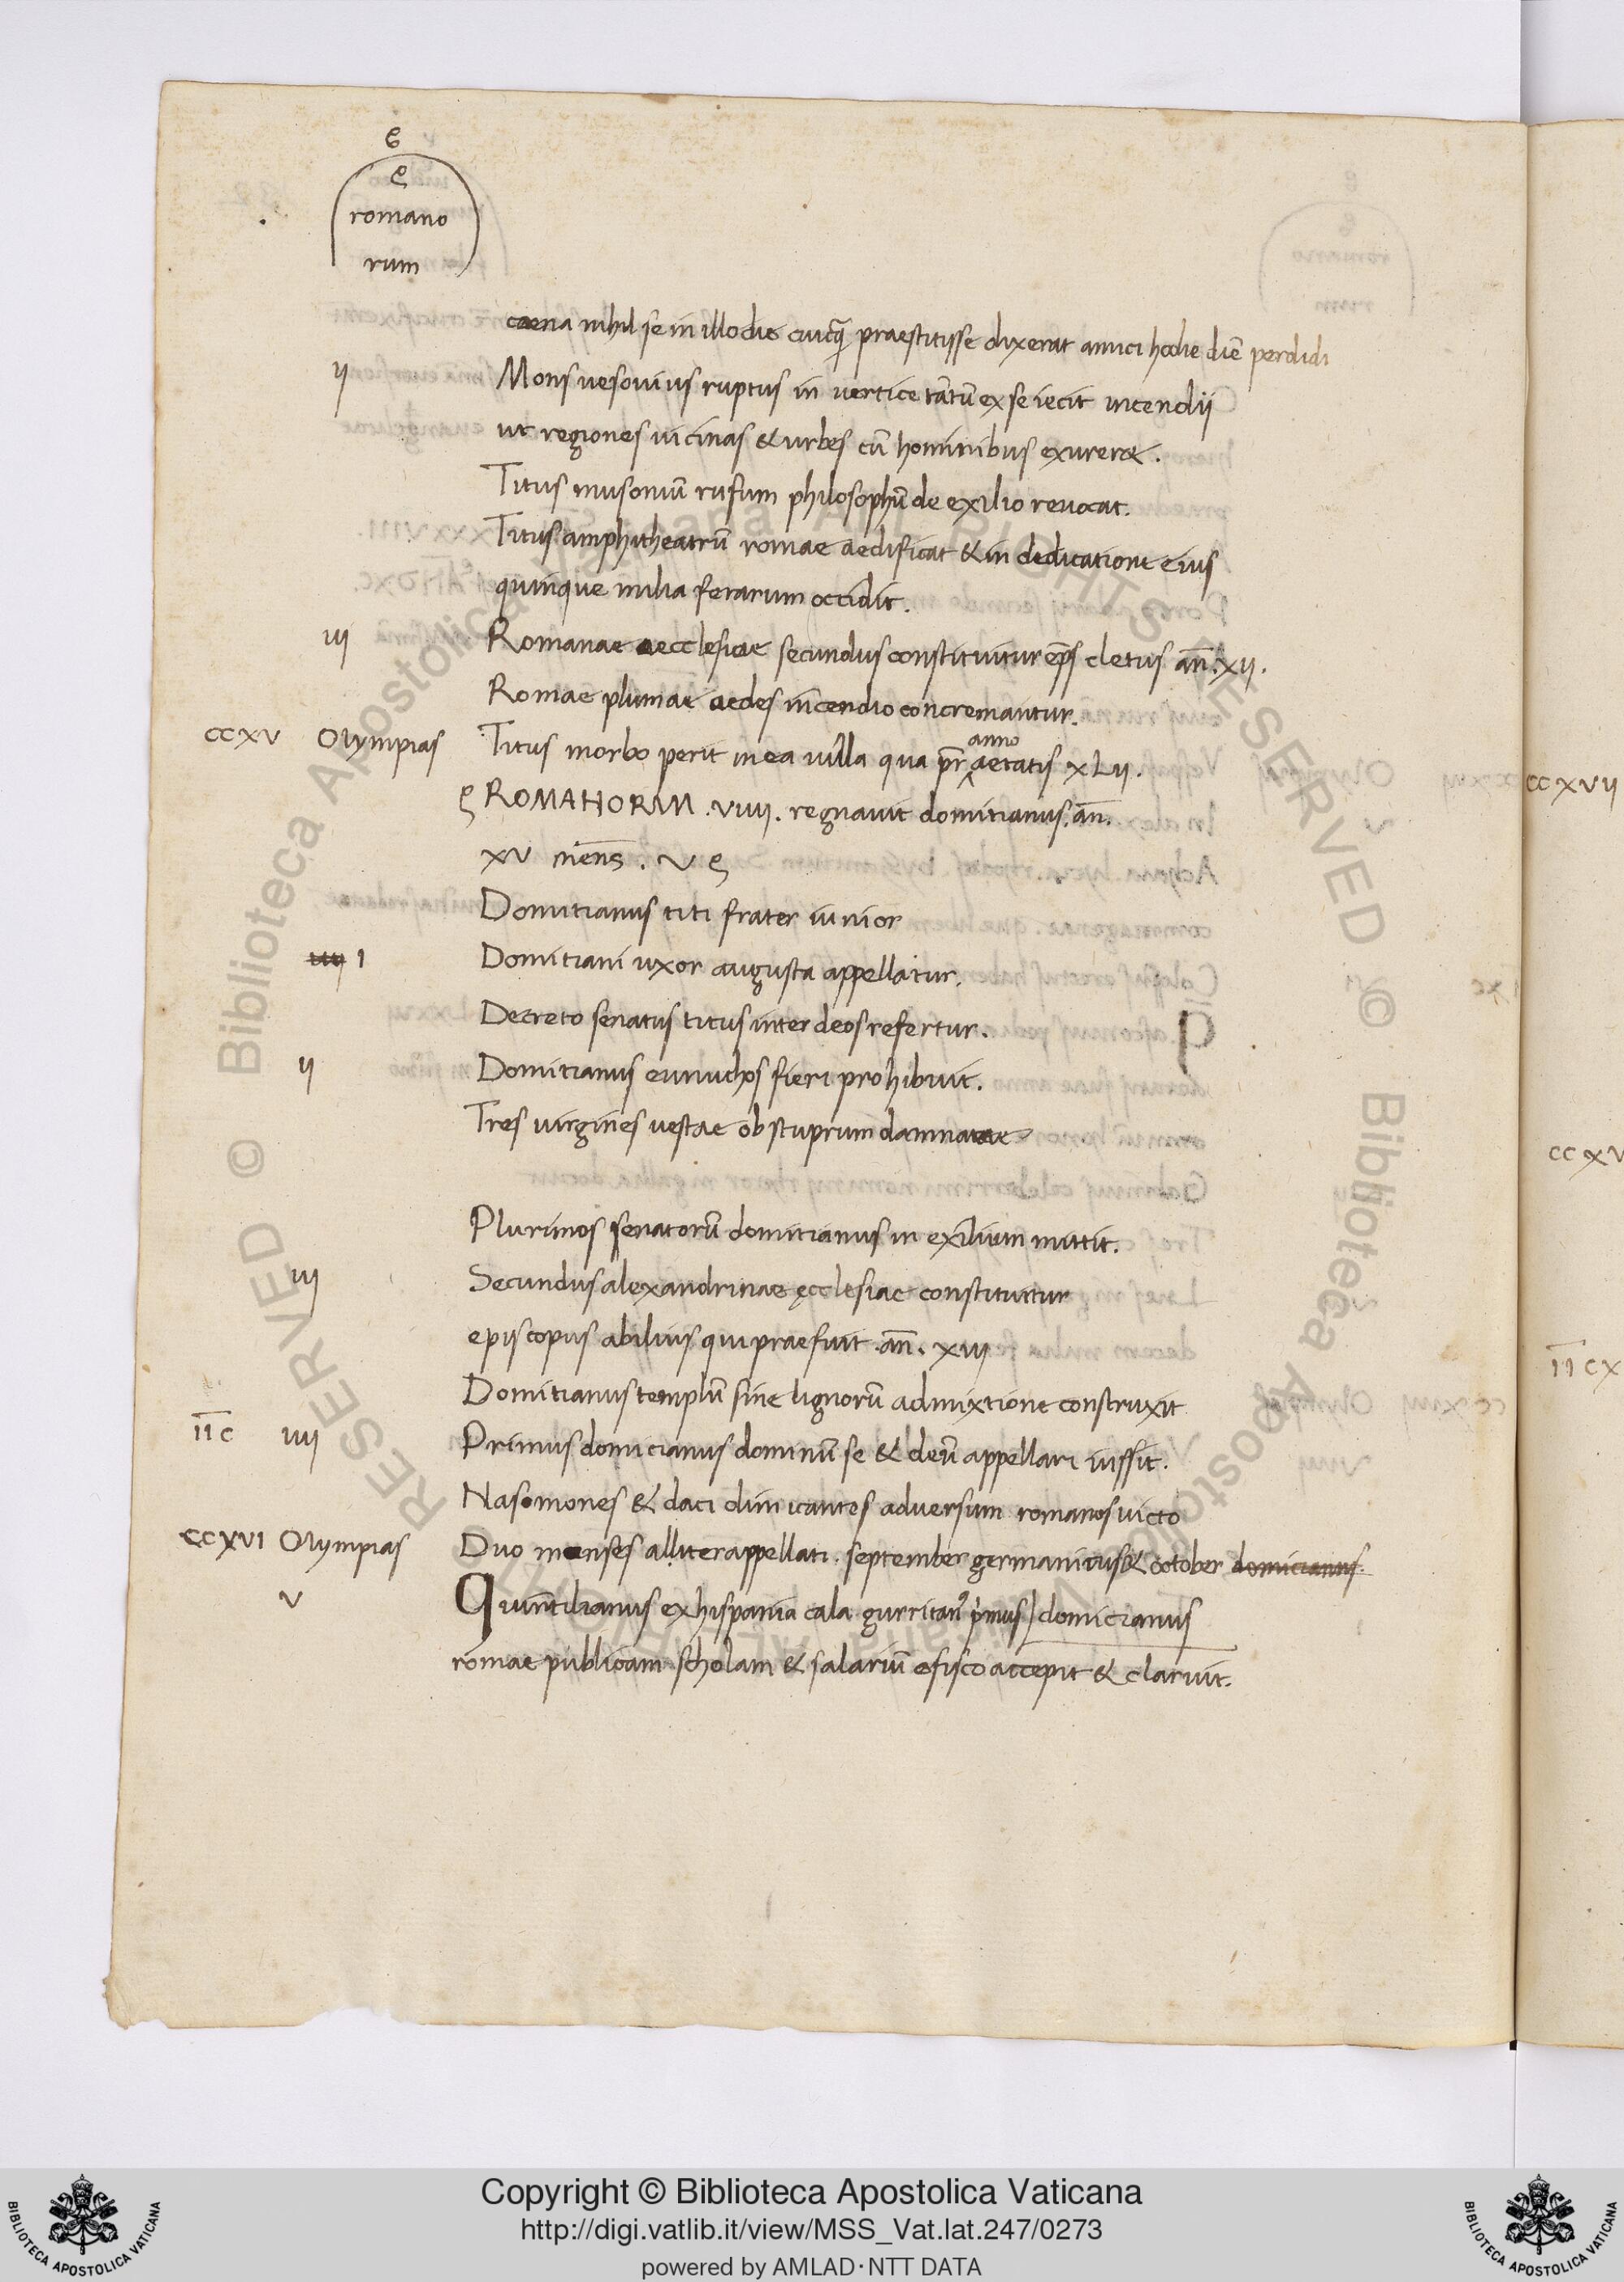 ę
romano
rum
caena nihil se in illo die cuicq̃ praestitisse dixerat amici hodie diē perdidi
ii Mons uesouius ruptus in vertice tātū ex se iecit incendii
ut regiones uicinas & urbes cū hominibus exurer&.
Titus musoniū rufum philosophū de exilio reuocat.
Titus amphitheatrū romae aedificat & in dedicatione eius
quinque milia ferarum occidit.
iii Romanae aecclesiae secundus constituitur ep̄s cletus an̄. xii.
Romae plumae aedes incendio concremantur.
ccxv Olympias Titus morbo perit in ea uilla qua pr̄ anno aetatis xLii.
ROMANORUM .viiii. regnauit domitianus. an̄.
xv mens̄. v
Domitianus titi frater iunior
i Domitiani uxor augusta appellatur.
Decreto senatus titus inter deos refertur.
ii Domitianus eunuchos fieri prohibuit.
Tres uirgines uestae ob stuprum damnatae
Plurimos senatorū domitianus in exilium mittit.
iii Secundus alexandrinae ęcclesiae constituitur
episcopus abilius qui praefuit .an̄. xiii
Domitianus templū sine lignorū admixtione construxit
iic iiii Primus domicianus dominū se & deū appellari iussit.
Nasomones & daci dimicantes adversum romanos uicto
ccxvi Olympias Duo menses alliter appellati. september germanicus & october domicianus.
v Quintilianus ex hispania calagurritan9 primus domicianus
romae publicam scholam & salariū e fisco accepit & claruit.
ccxvii
ccxv
iicx
Copyright © Biblioteca Apostolica Vaticana
http://digi.vatlib.it/view/MSS_Vat.lat.247/0273
powered by AMLAD·NTT DATA
BIBLIOTECA APOSTOLICA VATICANA
BIBLIOTECA APOSTOLICA VATICANA